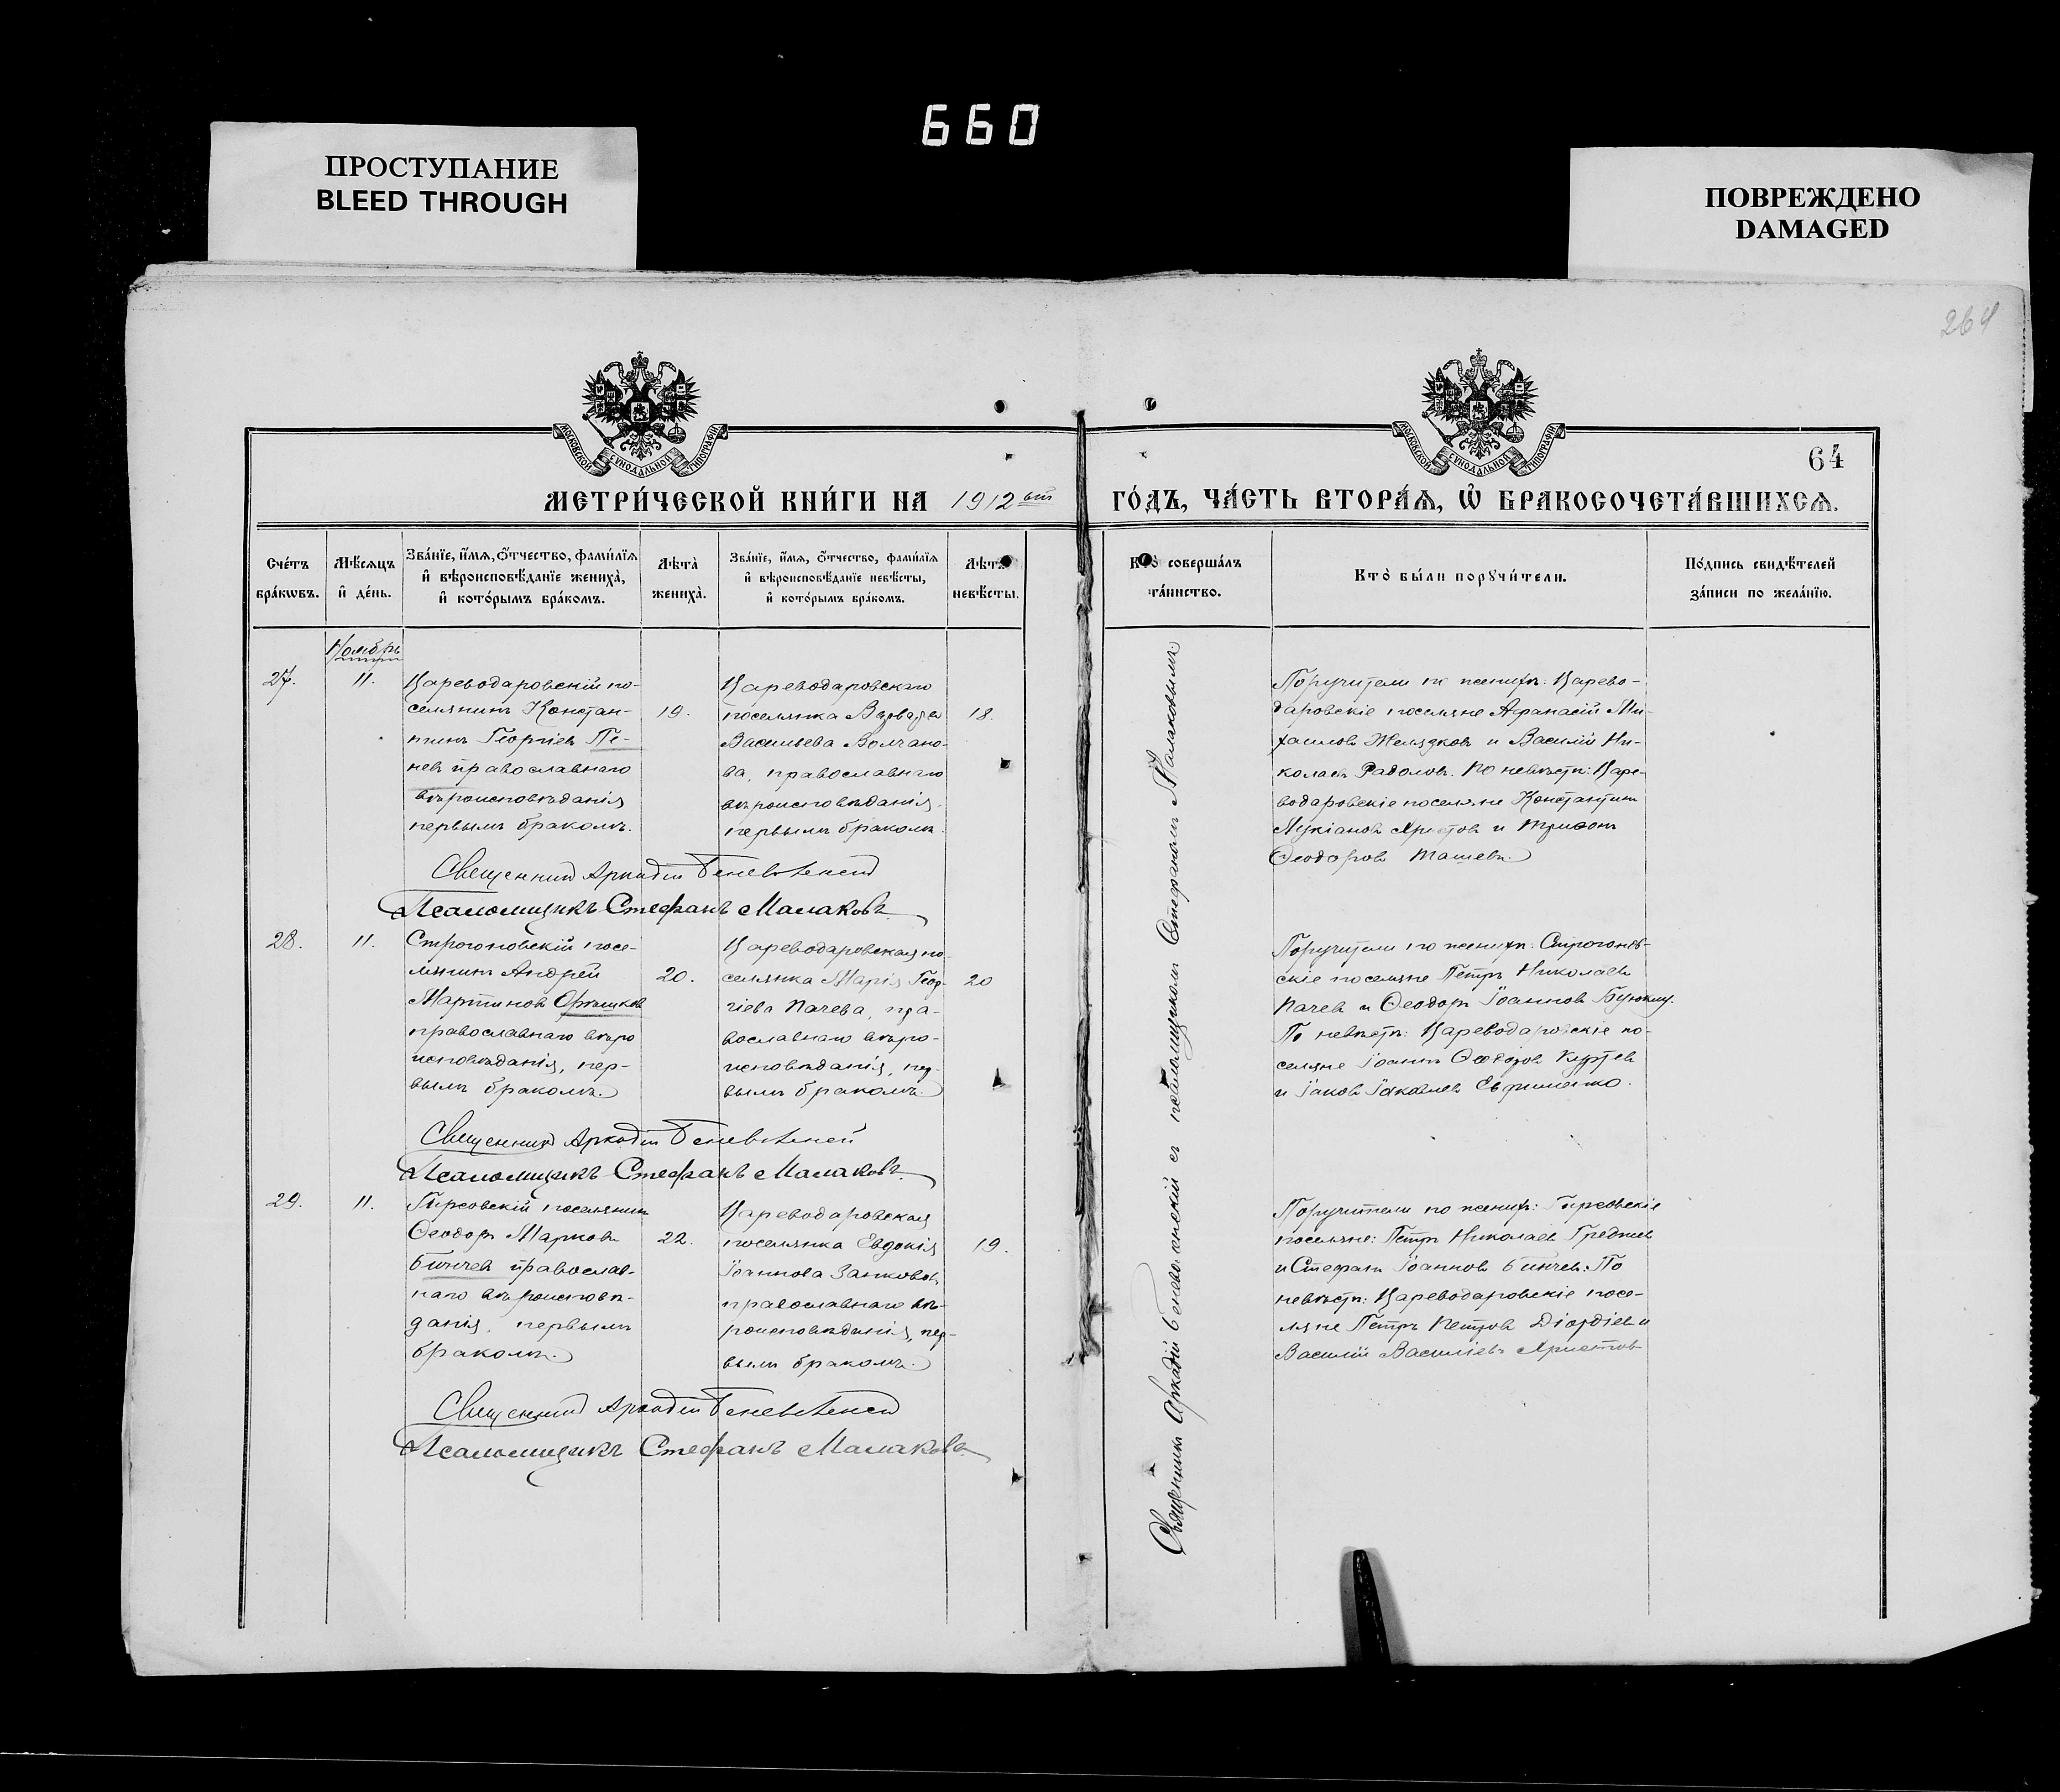 660
ПРОСТУПАНИЕ
BLEED THROUGH
ПОВРЕЖДЕНО
DAMAGED
264
МОСКОВСКОЙ СУНОДАЛЬНОЙ ТИПОГРАФІИ
МОСКОВСКОЙ СУНОДАЛЬНОЙ ТИПОГРАФІИ
64
МЕТРИ́ЧЕСКОЙ КНИ́ГИ НА 1912 ГО́ДЪ, ЧА́СТЬ ВТОРА́Ѧ, Ѽ БРАКОСОЧЕТА́ВШИХСѦ.
Сче́тъ бра́кѡвъ.
Мѣ́сѧцъ и҆ де́нь.
Зва́нїе, и҆́мѧ, ѻ҆́тчество, фами́лїѧ
и҆ вѣроисповѣ́данїе жениха̀,
и҆ кото́рымъ бра́комъ.
Лѣ́та̀ жениха̀.
Зва́нїе, и҆́мѧ, ѻ҆́тчество, фами́лїѧ
и҆ вѣроисповѣ́данїе невѣ́сты,
и҆ кото́рымъ бра́комъ.
Лѣ́та̀ невѣ́сты.
Кто̀ соверша́лъ та́инство.
Кто̀ бы́ли порꙋчи́тели.
По́дпись свидѣ́телей за́писи по жела́нїю.
Ноябрь
27.
11.
Цареводаровскій по-
селянинъ Констан-
тинъ Георгіевъ Пе-
невъ православнаго
вѣроисповѣданія
первымъ бракомъ.
19.
Цареводаровская
поселянка
Васильева Волчано-
ва, православнаго
вѣроисповѣданія,
первымъ бракомъ.
18.
Поручители по женихѣ: Царево-
даровскіе поселяне Афанасій Ми-
хаиловъ Желязковъ и Василій Ни-
колаевъ Радоловъ. По невѣстѣ: Царе-
водаровскіе поселяне Константинъ
Лукіановъ Христовъ и Трифонъ
Ѳеодоровъ Ташевъ.
Священникъ Аркадій Беневоленскій
Псаломщикъ Стефанъ Малаковъ
28.
11.
Строгоновскій посе-
лянинъ Андрей
Мартиновъ
православнаго вѣро
исповѣданія, пер-
вымъ бракомъ.
20.
Цареводаровская по-
селянка Марія Геор-
гіева Пачева, пра-
вославнаго вѣро-
исповѣданія, пер-
вымъ бракомъ.
20
Поручители по женихѣ: Строгонов-
скіе поселяне Петръ Николаевъ
Пачев и Ѳеодоръ Іоанновъ
По невѣстѣ: Цареводаровскіе по-
селяне Іоаннъ Ѳеодоровъ Куртев
и Іаковъ Іаковлевъ Евфименко.
Священникъ Аркадій Беневоленскій
Псаломщикъ Стефанъ Малаковъ
29.
11.
Гирсовскій поселянинъ
Ѳеодоръ Марковъ
Бинчев православ-
наго вѣроисповѣ-
данія, первымъ
бракомъ.
22.
Цареводаровская
поселянка Евдокія
Іоаннова
православнаго вѣ-
роисповѣданія, пер-
вымъ бракомъ.
19.
Поручители по женихѣ: Гирсовскіе
поселяне: Петръ Николаевъ
и Стефанъ Іоанновъ Бинчев. По
невѣстѣ: Цареводаровскіе посе-
ляне Петръ Петровъ Діордіевъ и
Василій Василіевъ Христовъ
Священникъ Аркадій Беневоленскій
Псаломщикъ Стефанъ Малаковъ
Священникъ Аркадій Беневоленскій съ псаломщикомъ Стефаномъ Малаковымъ